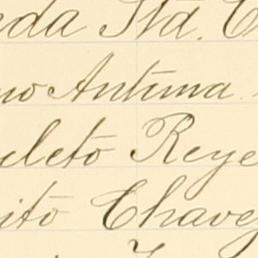 eda Std. C
no Antuna
cleto Reye
ito Chavez